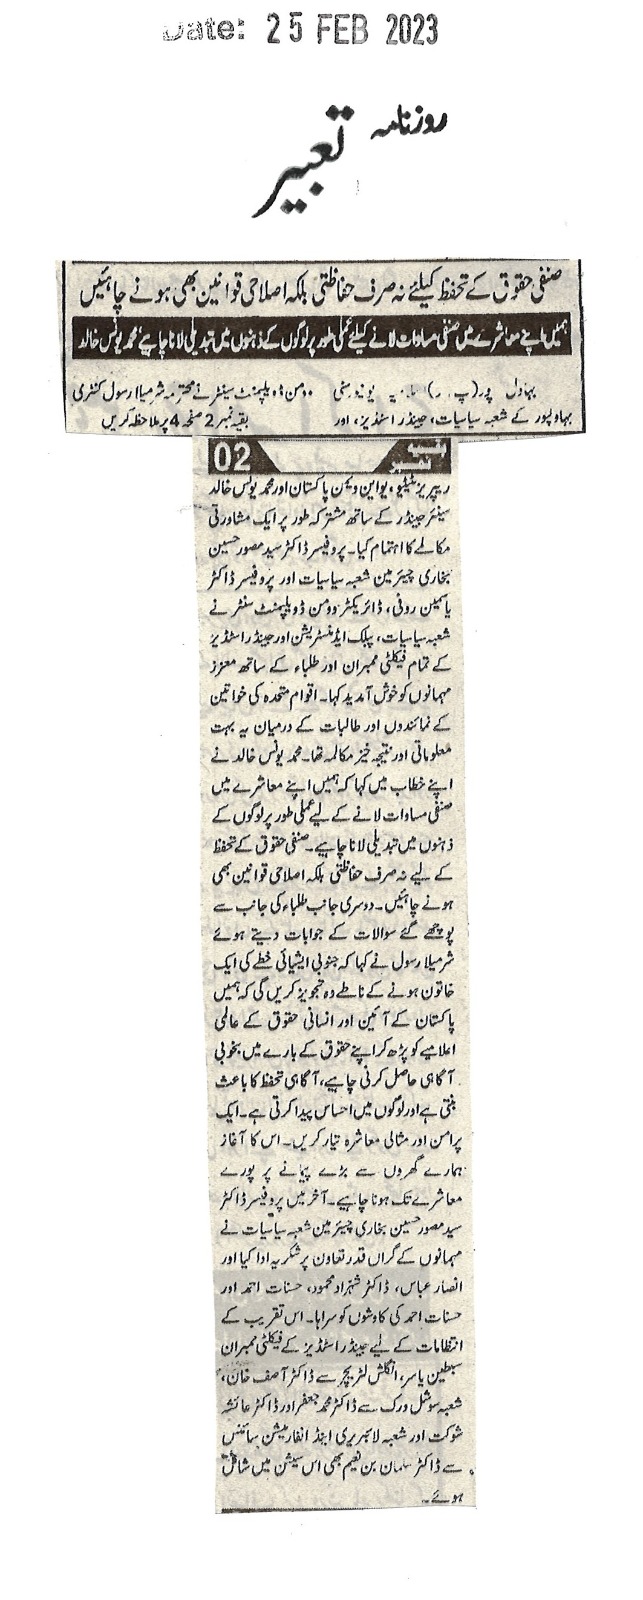 Date: 25 FEB 2023
روزنامہ تعبیر
صنفی حقوق کے تحفظ کیلئے نہ صرف حفاظتی بلکہ اصلاحی قوانین بھی ہونے چاہئیں
ہمیں اپنے معاشرے میں صنفی مساوات لانے کیلئے عملی طور پر لوگوں کے ذہنوں میں تبدیلی لانا چاہیے، محمد یونس خالد
بہاول پور (پ۔ر) یونیورسٹی
بہاولپور کے شعبہ سیاسیات، جینڈر اسٹڈیز، اور
وومن ڈویلپمنٹ سینٹر نے محترمہ شرمیلا رسول کنٹری
بقیہ نمبر 2 صفحہ 4 پر ملاحظہ کریں
بقیہ نمبر 02
ریپریزنٹیٹیو، یو این ویمن پاکستان اور محمد یونس خالد
سینئر جینڈر کے ساتھ مشترکہ طور پر ایک مشاورتی
مکالمے کا اہتمام کیا۔ پروفیسر ڈاکٹر سید مصور حسین
بخاری چیئرمین شعبہ سیاسیات اور پروفیسر ڈاکٹر
یاسمین روفی، ڈائریکٹر وومن ڈویلپمنٹ سنٹر نے
شعبہ سیاسیات، پبلک ایڈمنسٹریشن اور جینڈر اسٹڈیز
کے تمام فیکلٹی ممبران اور طلباء کے ساتھ معزز
مہمانوں کو خوش آمدید کہا۔ اقوام متحدہ کی خواتین
کے نمائندوں اور طالبات کے درمیان یہ بہت
معلوماتی اور نتیجہ خیز مکالمہ تھا۔ محمد یونس خالد نے
اپنے خطاب میں کہا کہ ہمیں اپنے معاشرے میں
صنفی مساوات لانے کے لیے عملی طور پر لوگوں کے
ذہنوں میں تبدیلی لانا چاہیے۔ صنفی حقوق کے تحفظ
کے لیے نہ صرف حفاظتی بلکہ اصلاحی قوانین بھی
ہونے چاہئیں۔ دوسری جانب طلباء کی جانب سے
پوچھے گئے سوالات کے جوابات دیتے ہوئے
شرمیلا رسول نے کہا کہ جنوبی ایشیائی خطے کی ایک
خاتون ہونے کے ناطے وہ تجویز کریں گی کہ ہمیں
پاکستان کے آئین اور انسانی حقوق کے عالمی
اعلامیے کو پڑھ کر اپنے حقوق کے بارے میں بخوبی
آگاہی حاصل کرنی چاہیے، آگاہی تحفظ کا باعث
بنتی ہے اور لوگوں میں احساس پیدا کرتی ہے۔ ایک
پرامن اور مثالی معاشرہ تیار کریں۔ اس کا آغاز
ہمارے گھروں سے بڑے پیمانے پر پورے
معاشرے تک ہونا چاہیے۔ آخر میں پروفیسر ڈاکٹر
سید مصور حسین بخاری چیئرمین شعبہ سیاسیات نے
مہمانوں کے گراں قدر تعاون پر شکریہ ادا کیا اور
انصار عباس، ڈاکٹر شہزاد محمود، حسنات احمد اور
حسنات احمد کی کاوشوں کو سراہا۔ اس تقریب کے
انتظامات کے لیے جینڈر اسٹڈیز کے فیکلٹی ممبران
سبطین یاسر، انگلش لٹریچر سے ڈاکٹر آصف خان،
شعبہ سوشل ورک سے ڈاکٹر محمد جعفر اور ڈاکٹر عائشہ
شوکت اور شعبہ لائبریری اینڈ انفارمیشن سائنس
سے ڈاکٹر سلمان بن نعیم بھی اس سیشن میں شامل
ہوئے۔